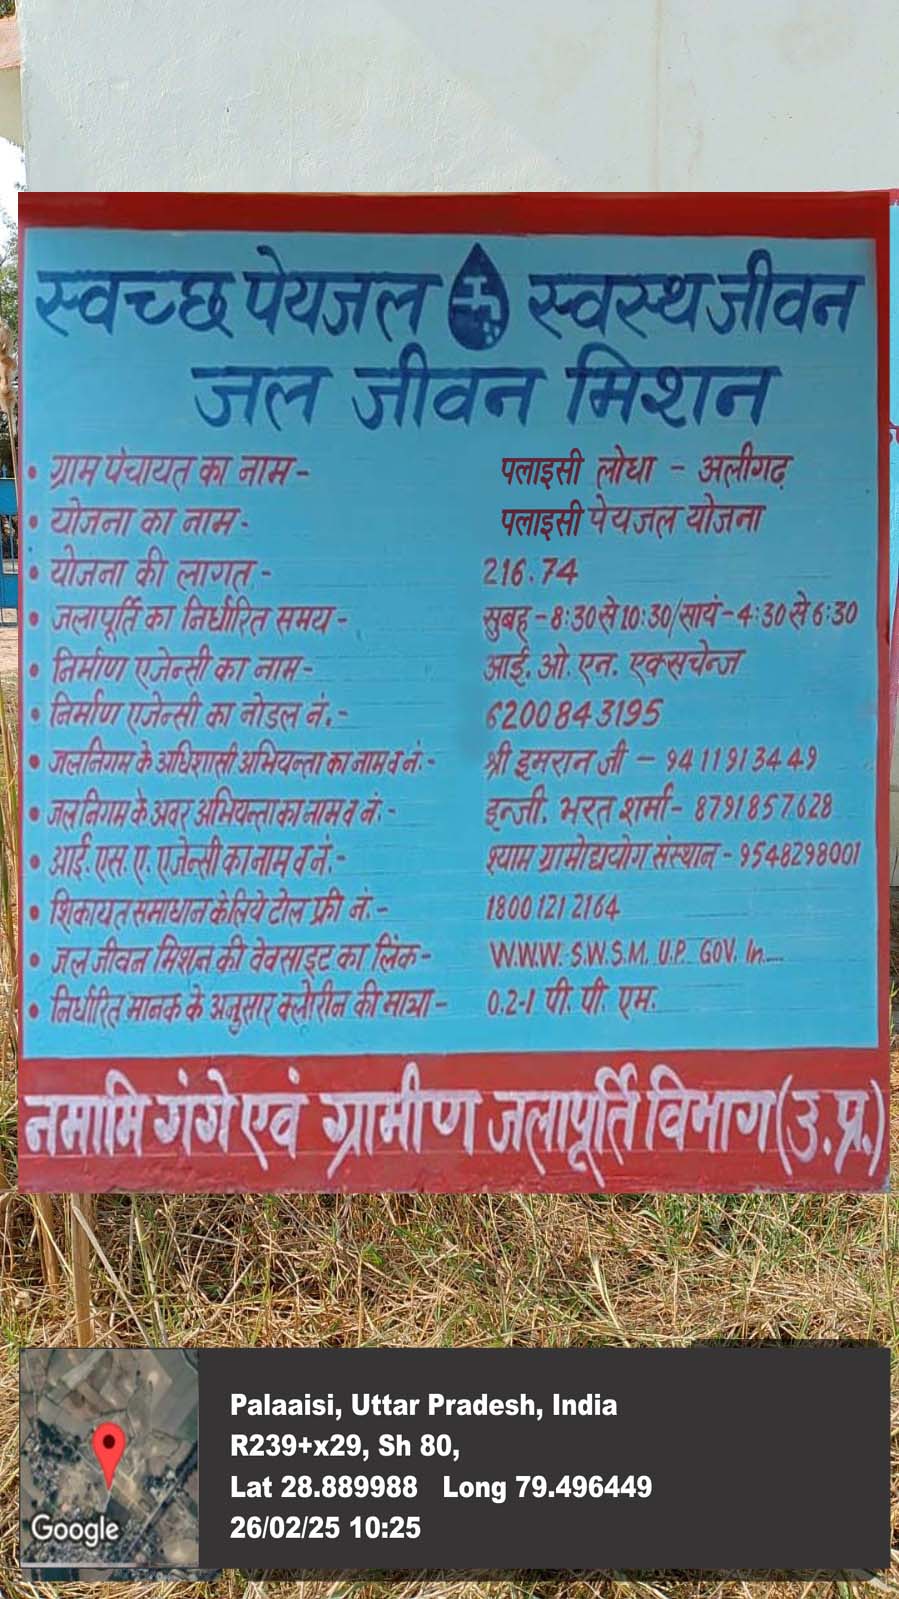 स्वच्छ पेयजल स्वस्थ जीवन
जल जीवन मिशन
• ग्राम पंचायत का नाम - पलाइसी लोधा - अलीगढ़
• योजना का नाम - पलाइसी पेयजल योजना
• योजना की लागत - 216.74
• जलापूर्ति का निर्धारित समय - सुबह - 8:30 से 10:30/सायं - 4:30 से 6:30
• निर्माण एजेन्सी का नाम - आई. ओ. एन. एक्सचेन्ज
• निर्माण एजेन्सी का नोडल नं. - 6200843195
• जलनिगम के अधिशासी अभियन्ता का नाम व नं: - श्री इमरान जी - 9411913449
• जलनिगम के अवर अभियन्ता का नाम व नं: - इन्जी. भरत शर्मा - 8791857628
• आई. एस. ए. एजेन्सी का नाम व नं. - श्याम ग्रामोद्ययोग संस्थान - 9548298001
• शिकायत समाधान के लिये टोल फ्री नं. - 1800 121 2164
• जल जीवन मिशन की वेवसाइट का लिंक - W.W.W. S.W.S.M. U.P. GOV. In....
• निर्धारित मानक के अनुसार क्लोरीन की मात्रा - 0.2-1 पी. पी. एम.
नमामि गंगे एवं ग्रामीण जलापूर्ति विभाग (उ.प्र.)
Palaaisi, Uttar Pradesh, India
R239+x29, Sh 80,
Lat 28.889988 Long 79.496449
26/02/25 10:25
Google